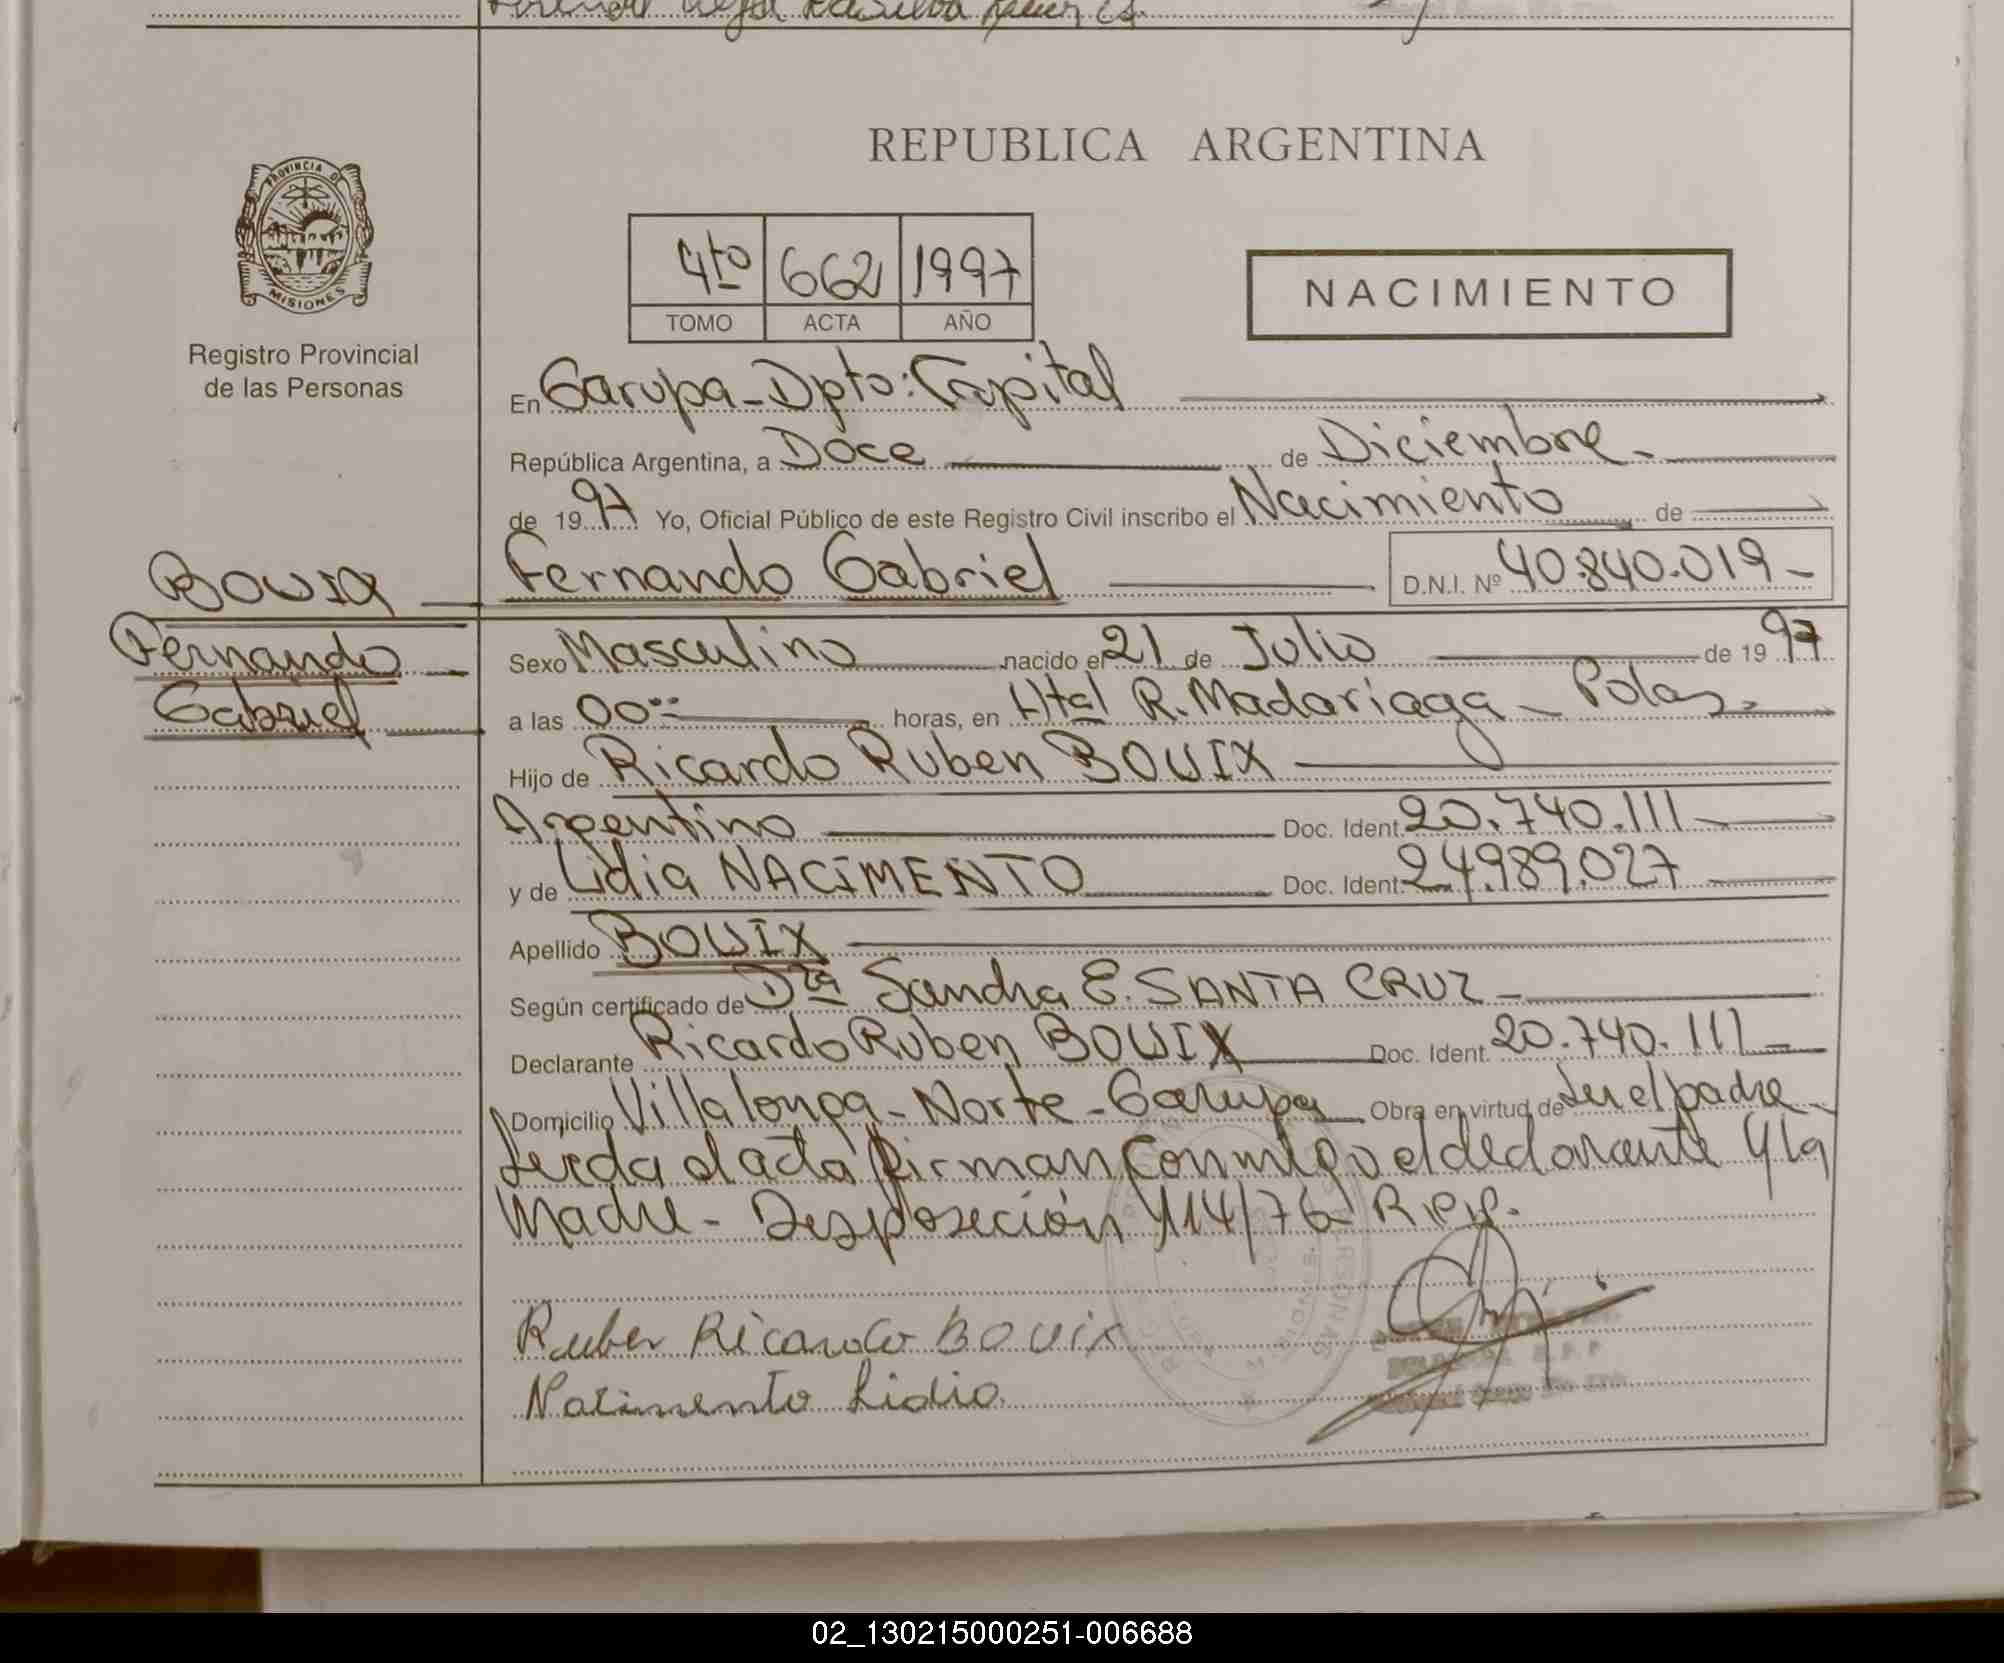 REPUBLICA ARGENTINA
PROVINCIA DE
MISIONES
Registro Provincial
de las Personas
4to 662 1997
TOMO ACTA AÑO
NACIMIENTO
En Garupa - Dpto: Capital
República Argentina, a Doce de Diciembre -
de 1997 Yo, Oficial Público de este Registro Civil inscribo el Nacimiento de
Fernando Gabriel D.N.I. Nº 40.840.019 -
BOUIX
Fernando
Gabriel
Sexo Masculino nacido el 21 de Julio de 1997
a las 00:00 horas, en Htal R. Madariaga - Pdas.
Hijo de Ricardo Ruben BOUIX
Argentino Doc. Ident. 20.740.111 -
y de Lidia NACIMENTO Doc. Ident. 24.989.027
Apellido BOUIX
Según certificado de Dra Sandra E. SANTA CRUZ -
Declarante Ricardo Ruben BOUIX Doc. Ident. 20.740.111 -
Domicilio Villalonga - Norte - Garupa Obra en virtud de ser el padre -
Leida el acta firman conmigo el declarante y la
Madre - 114/76 R.P.P.
Ruben Ricardo BOUIX
Nacimento Lidia
02_130215000251-006688